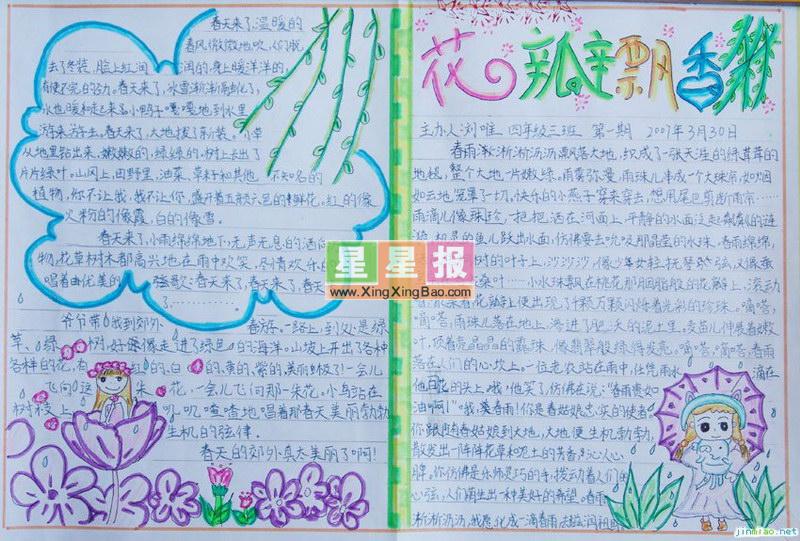 春天来了,温暖的
春风微微地吹,人们脱
去了冬装,脸上红润润的,身上暖洋洋的,
有使不完的劲。春天来了,冰雪渐渐融化了,
水也暖和起来,小鸭子嘎嘎地到水里
游来游去。春天来了,大地披了新装。小草
从地里钻出来,嫩嫩的,绿绿的,树上长出了
片片绿叶。山冈上,田野里,油菜、草籽和其他不知名的
植物,你不让我,我不让你,盛开着五颜六色的鲜花,红的像
火,粉的像霞,白的像雪。
春天来了,小雨绵绵地下,无声无息的洒向
物,花草树木都高兴地在雨中欢笑,尽情欢乐
唱着曲优美的强歌:春天来了,春天来了,春天
了……
爷爷带我到郊外春游。一路上,到处是绿
草、绿树,好像走进了绿色的海洋。山坡上开出了各种
各样的花,有红的、白的、黄的、紫的,美丽极了!一会儿
飞向这朵花,一会儿飞向那一朵花,小鸟站在
树枝上叽叽喳喳地唱着那春天美丽勃勃
生机的弦律。
春天的郊外真太美丽了啊!
花瓣飘香
主办人刘唯 四年级三班 第一期 2007年3月30日
春雨淅淅沥沥飘落大地,织成了一张天涯的绿茸茸的
地毯,整个大地一片嫩绿。雨雾弥漫,雨珠儿串成一个大珠帘,如烟
如云地笼罩了一切,快乐的小燕子穿来穿去,想用尾巴剪断雨帘……
雨滴儿像珠珍,一把把洒在河面上,平静的水面泛起粼粼的涟
漪,机灵的鱼儿跃出水面,仿佛要去吮吸那晶莹的水珠。春雨绵绵,
树的叶子上,沙沙沙,像少女轻抚琴弦,又像蚕
桑叶……小水珠飘在桃花那胭脂般的花瓣上,滚动
便出现了千颗万颗闪烁着光彩的珍珠。嘀嗒,
嘀嗒,雨珠儿落在地上,渗进了肥沃的泥土里。麦苗儿伸展着嫩
叶,顶着亮晶晶的露珠,像翡翠般绿得发亮。嘀嗒,嘀嗒,春雨
落在人们的心坎上。一位老农站在雨中,任凭雨水滴在
他的头上,哦,他笑了,仿佛在说:“春雨贵如
油啊!”哦,蒙春雨!你是春姑娘忠实的使者,
你跟随春姑娘到大地,大地便生机勃勃,
散发出一阵阵花草和泥土的芳香,沁人心
脾。你仿佛是乐师灵巧的手,拨动着人们的
心弦,人们萌生出一种美好的希望。春雨
淅淅沥沥,我愿化成一滴春雨去滋润祖
星星报
www.XingXingBao.com
jinmiao.net